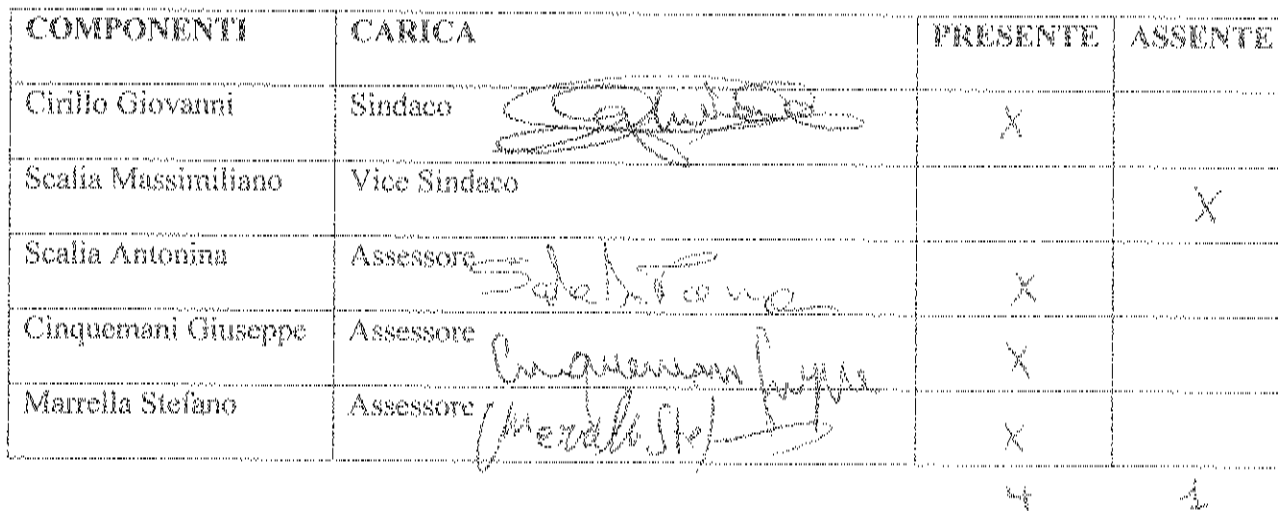 COMPONENTI CARICA PRESENTE ASSENTE
Cirillo Giovanni Sindaco X
Scalia Massimiliano Vice Sindaco X
Scalia Antonina Assessore X
Cinquemani Giuseppe Assessore Cinquemani X
Marrella Stefano Assessore X
4 1